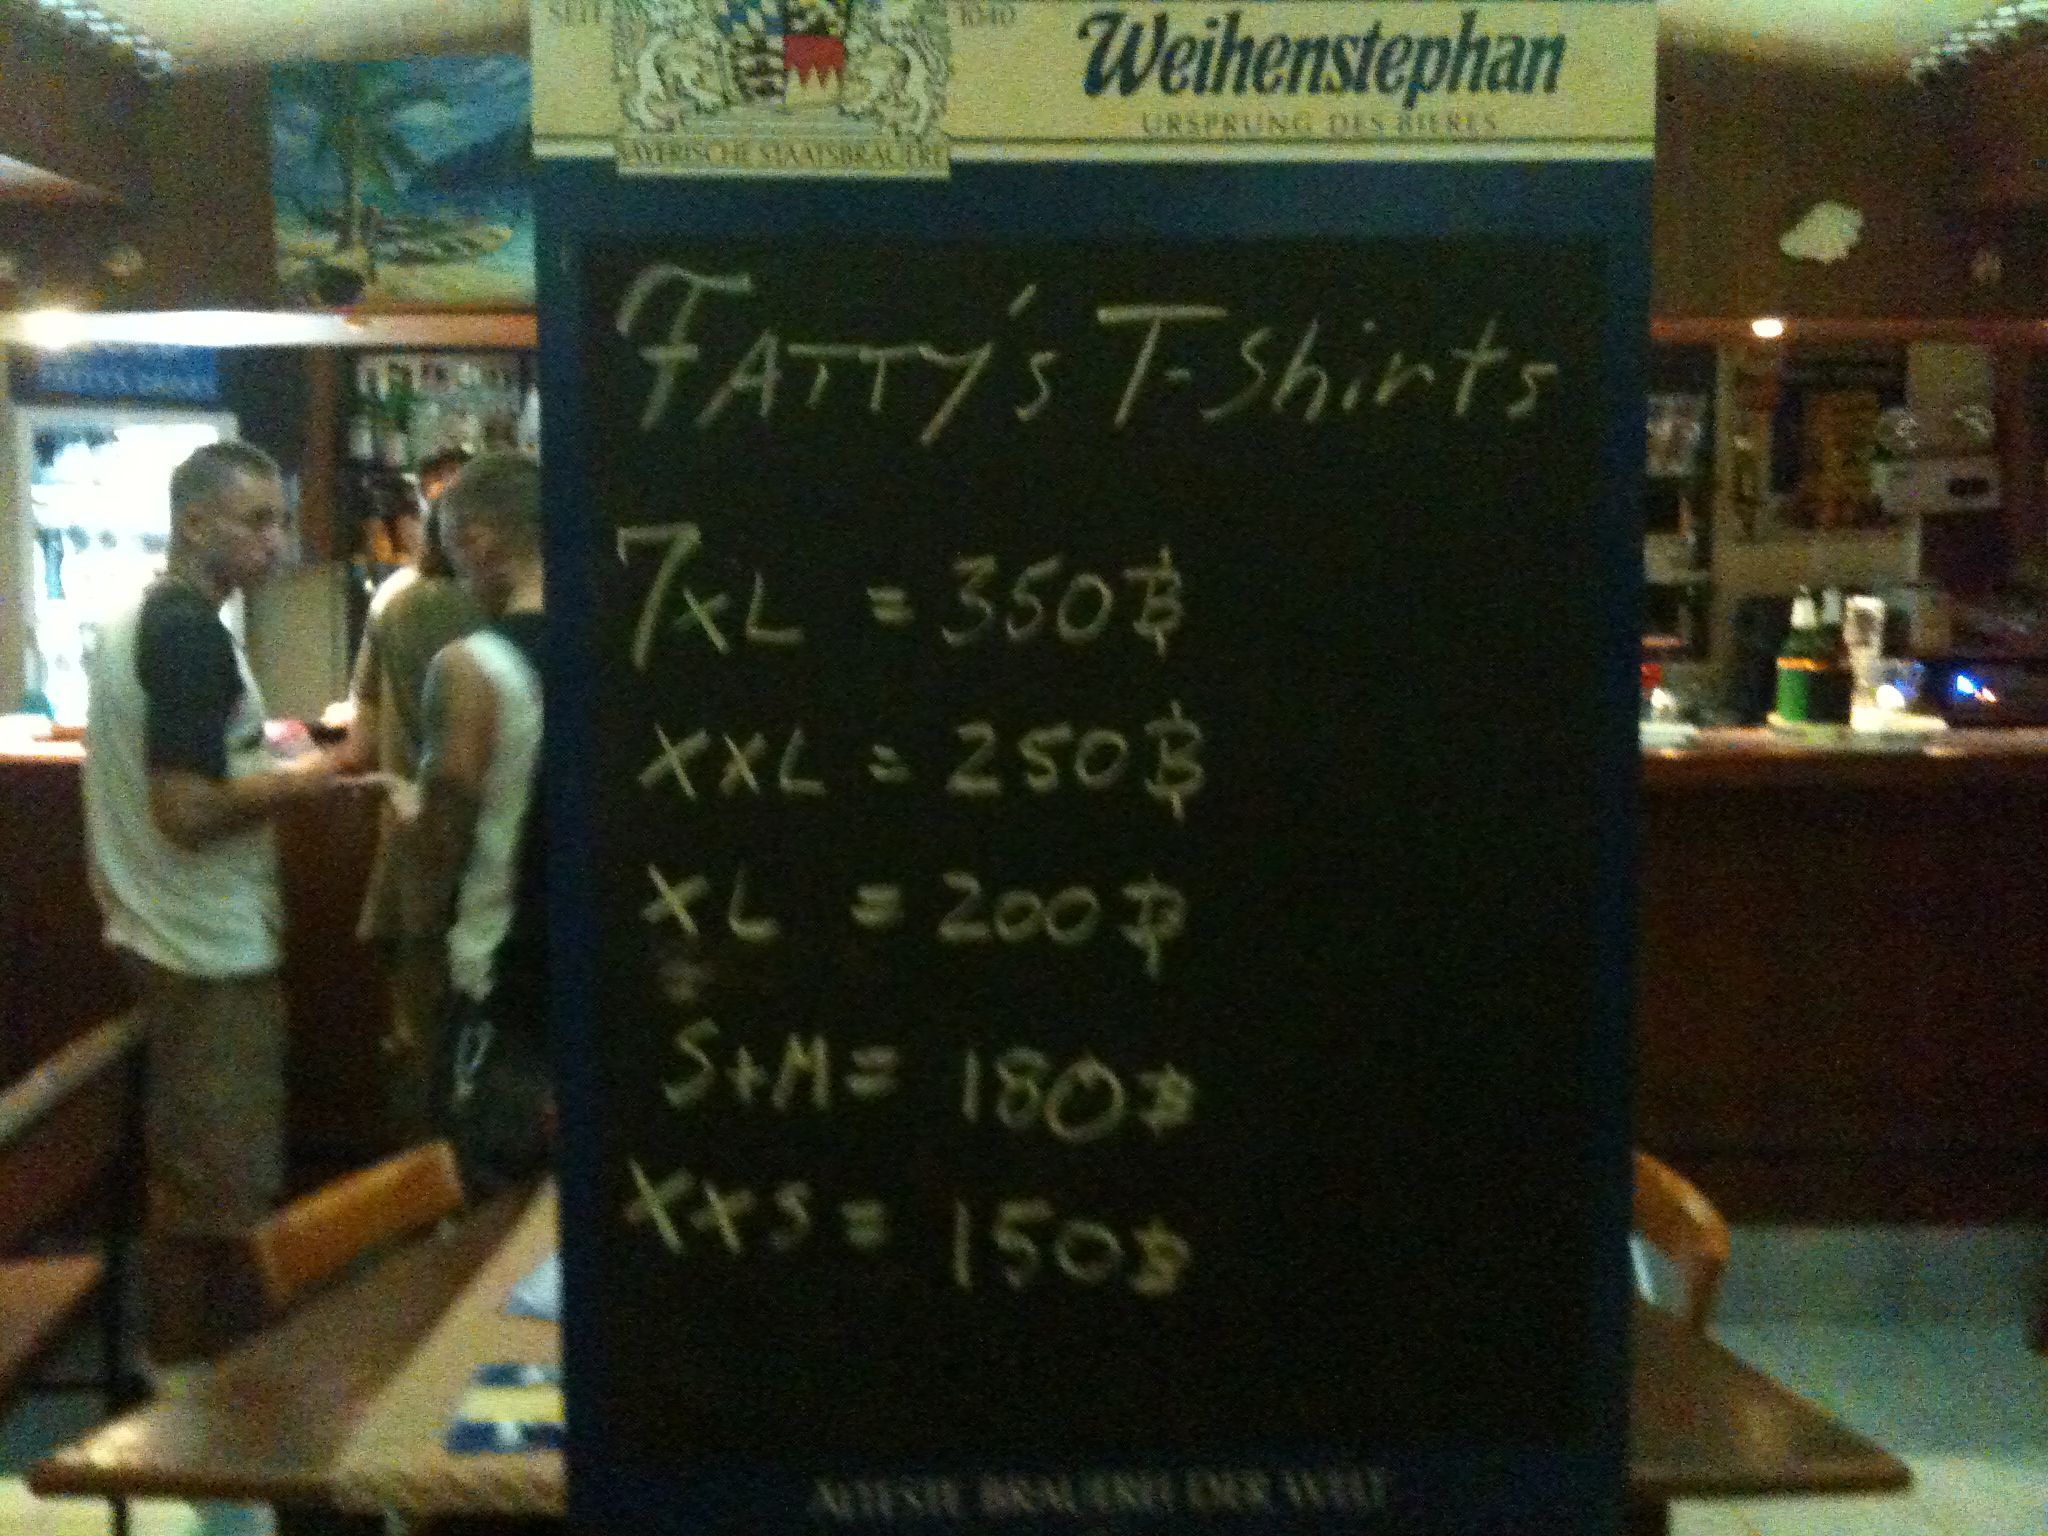 SEIT 1040
Weihenstephan
URSPRUNG DES BIERES
BAYERISCHE STAATSBRAUEREI
FATTY'S T-Shirts
7XL = 350฿
XXL = 250฿
XL = 200฿
S+M = 180฿
XXS = 150฿
ÄLTESTE BRAUEREI DER WELT